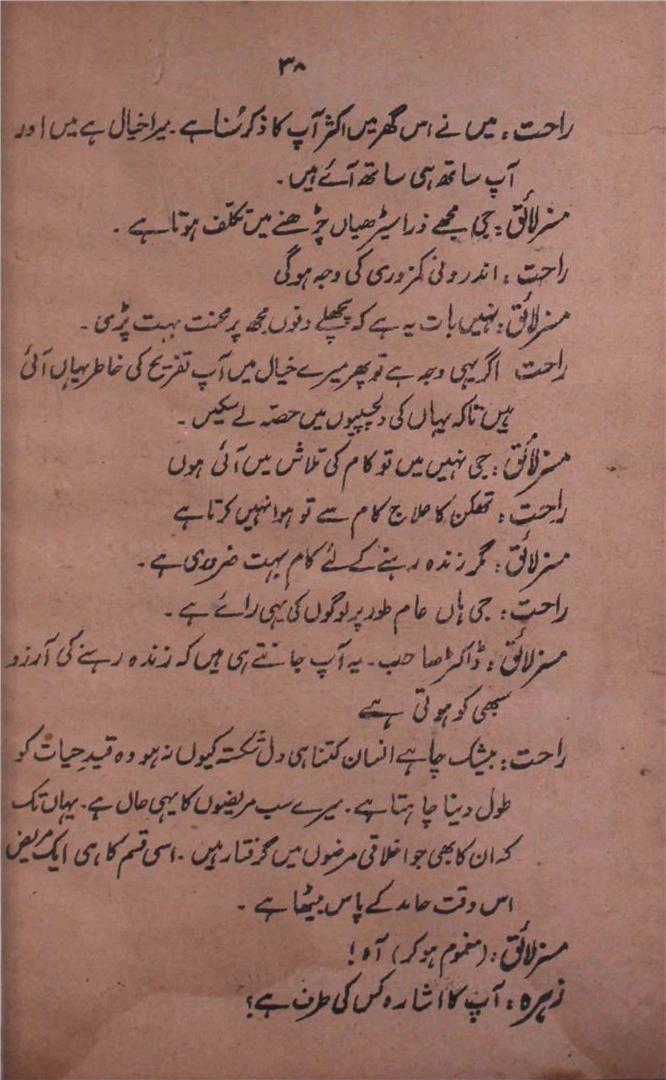 ۳۸
راحت : میں نے اس گھر میں اکثر آپ کا ذکر سُنا ہے ۔ میرا خیال ہے میں اور
آپ ساتھ ہی ساتھ آئے ہیں ۔
مسز لائق : جی مجھے ذرا سیڑھیاں چڑھنے میں تکلف ہوتا ہے ۔
راحت : اندرونی کمزوری کی وجہ ہوگی
مسز لائق : نہیں بات یہ ہے کہ پچھلے دنوں مجھ پر محنت بہت پڑی ۔
راحت اگر یہی وجہ ہے تو پھر میرے خیال میں آپ تفریح کی خاطر یہاں آئی
ہیں تاکہ یہاں کی دلچسپیوں میں حصّہ لے سکیں ۔
مسز لائق : جی نہیں میں تو کام کی تلاش میں آئی ہوں
راحت : تھکن کا علاج کام سے تو ہوا نہیں کرتا ہے
مسز لائق : مگر زندہ رہنے کے لئے کام بہت ضروری ہے ۔
راحت : جی ہاں عام طور پر لوگوں کی یہی رائے ہے ۔
مسز لائق : ڈاکٹر صاحب ۔ یہ آپ جانتے ہی ہیں کہ زندہ رہنے کی آرزو
سبھی کو ہوتی ہے
راحت : بیشک چاہے انسان کتنا ہی دل شکستہ کیوں نہ ہو وہ قیدِ حیات کو
طول دینا چاہتا ہے ۔ میرے سب مریضوں کا یہی حال ہے ۔ یہاں تک
کہ ان کا بھی جو اخلاقی مرضوں میں گرفتار ہیں ۔ اسی قسم کا ہی ایک مریض
اس وقت حامد کے پاس بیٹھا ہے ۔
مسز لائق : (مغموم ہو کر) آہ !
زہرہ : آپ کا اشارہ کس کی طرف ہے ؟